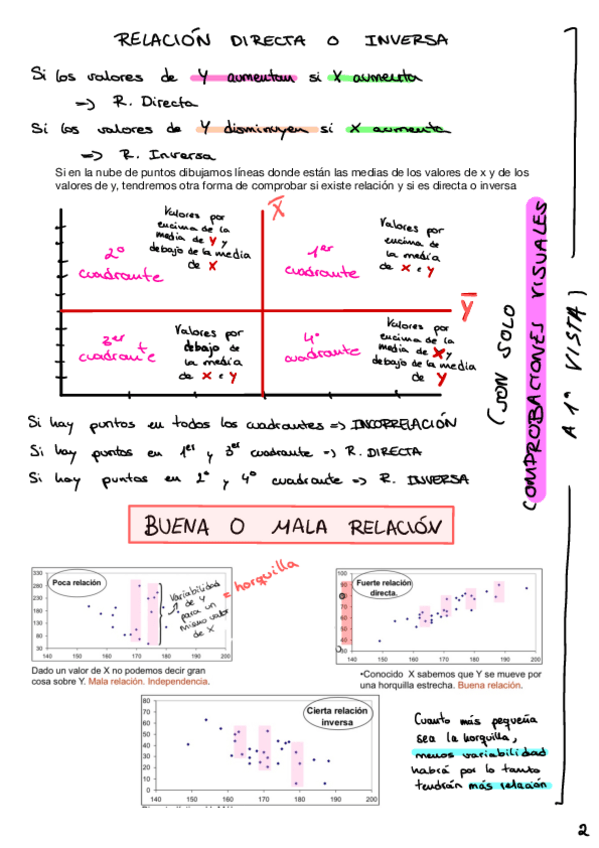 RELACIÓN DIRECTA O INVERSA
Si los valores de Y aumentan si X aumenta
=> R. Directa
Si los valores de Y disminuyen si X aumenta
=> R. Inversa
Si en la nube de puntos dibujamos líneas donde están las medias de los valores de x y de los
valores de y, tendremos otra forma de comprobar si existe relación y si es directa o inversa
X̅
2º
cuadrante
Valores por
encima de la
media de Y y
debajo de la media
de X
1er
cuadrante
Valores por
encima de
la media
de X e Y
Y̅
3er
cuadrante
Valores por
debajo de
la media
de X e Y
4º
cuadrante
Valores por
encima de la
media de X y
debajo de la media
de Y
(SON SOLO
COMPROBACIONES VISUALES
A 1ª VISTA)
Si hay puntos en todos los cuadrantes => INCORRELACIÓN
Si hay puntos en 1er y 3er cuadrante => R. DIRECTA
Si hay puntos en 2º y 4º cuadrante => R. INVERSA
BUENA O MALA RELACIÓN
Poca relación
330
280
230
180
130
80
30
140 150 160 170 180 190 200
Variabilidad
de Y
para un
mismo valor
de X
= horquilla
Dado un valor de X no podemos decir gran
cosa sobre Y. Mala relación. Independencia.
Fuerte relación
directa.
100
90
70
60
50
40
30
140 150 160 170 180 190 200
•Conocido X sabemos que Y se mueve por
una horquilla estrecha. Buena relación.
Cierta relación
inversa
80
70
60
50
40
30
20
10
0
140 150 160 170 180 190 200
Cuanto más pequeña
sea la horquilla,
menos variabilidad
habrá por lo tanto
tendrán más relación
2